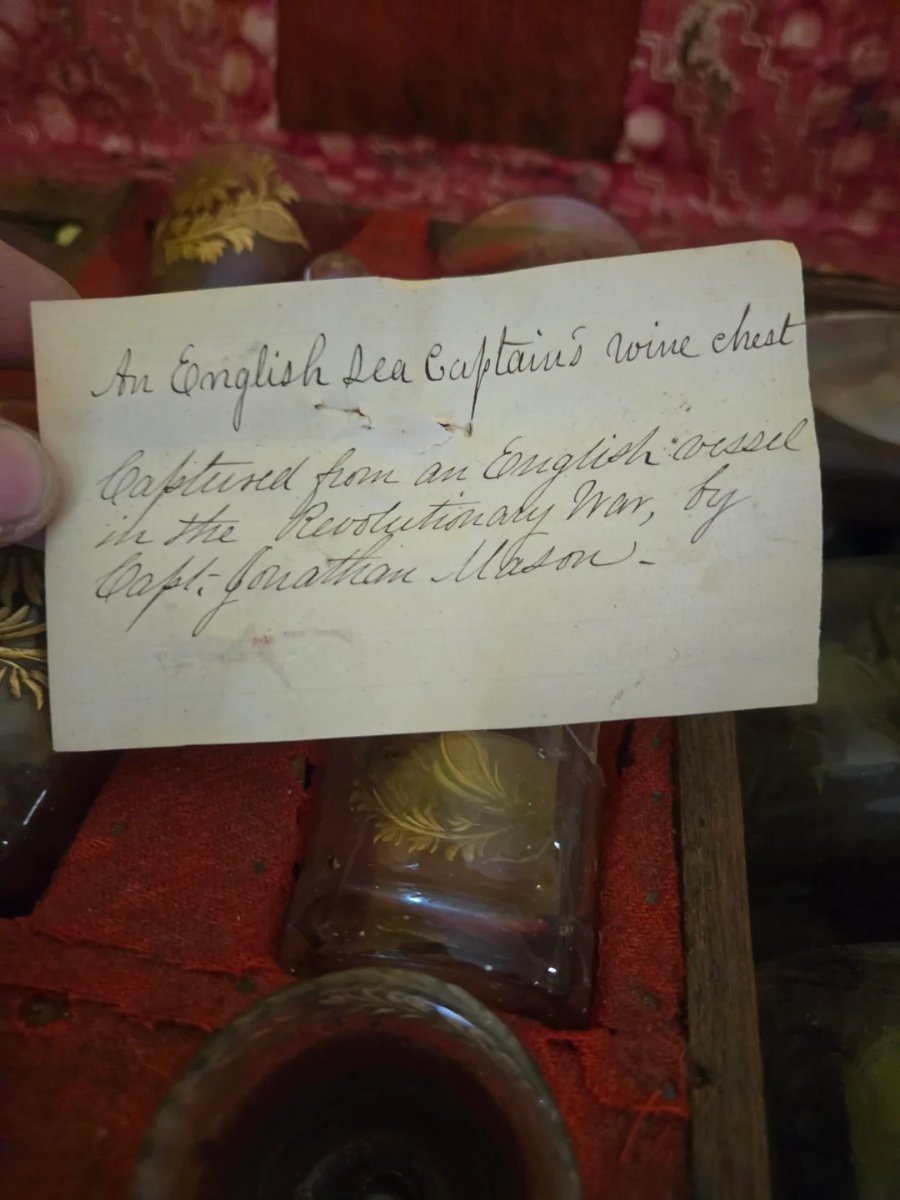 An English Sea Captain's wine chest
Captured from an English vessel
in the Revolutionary War, by
Capt. Jonathan Mason -